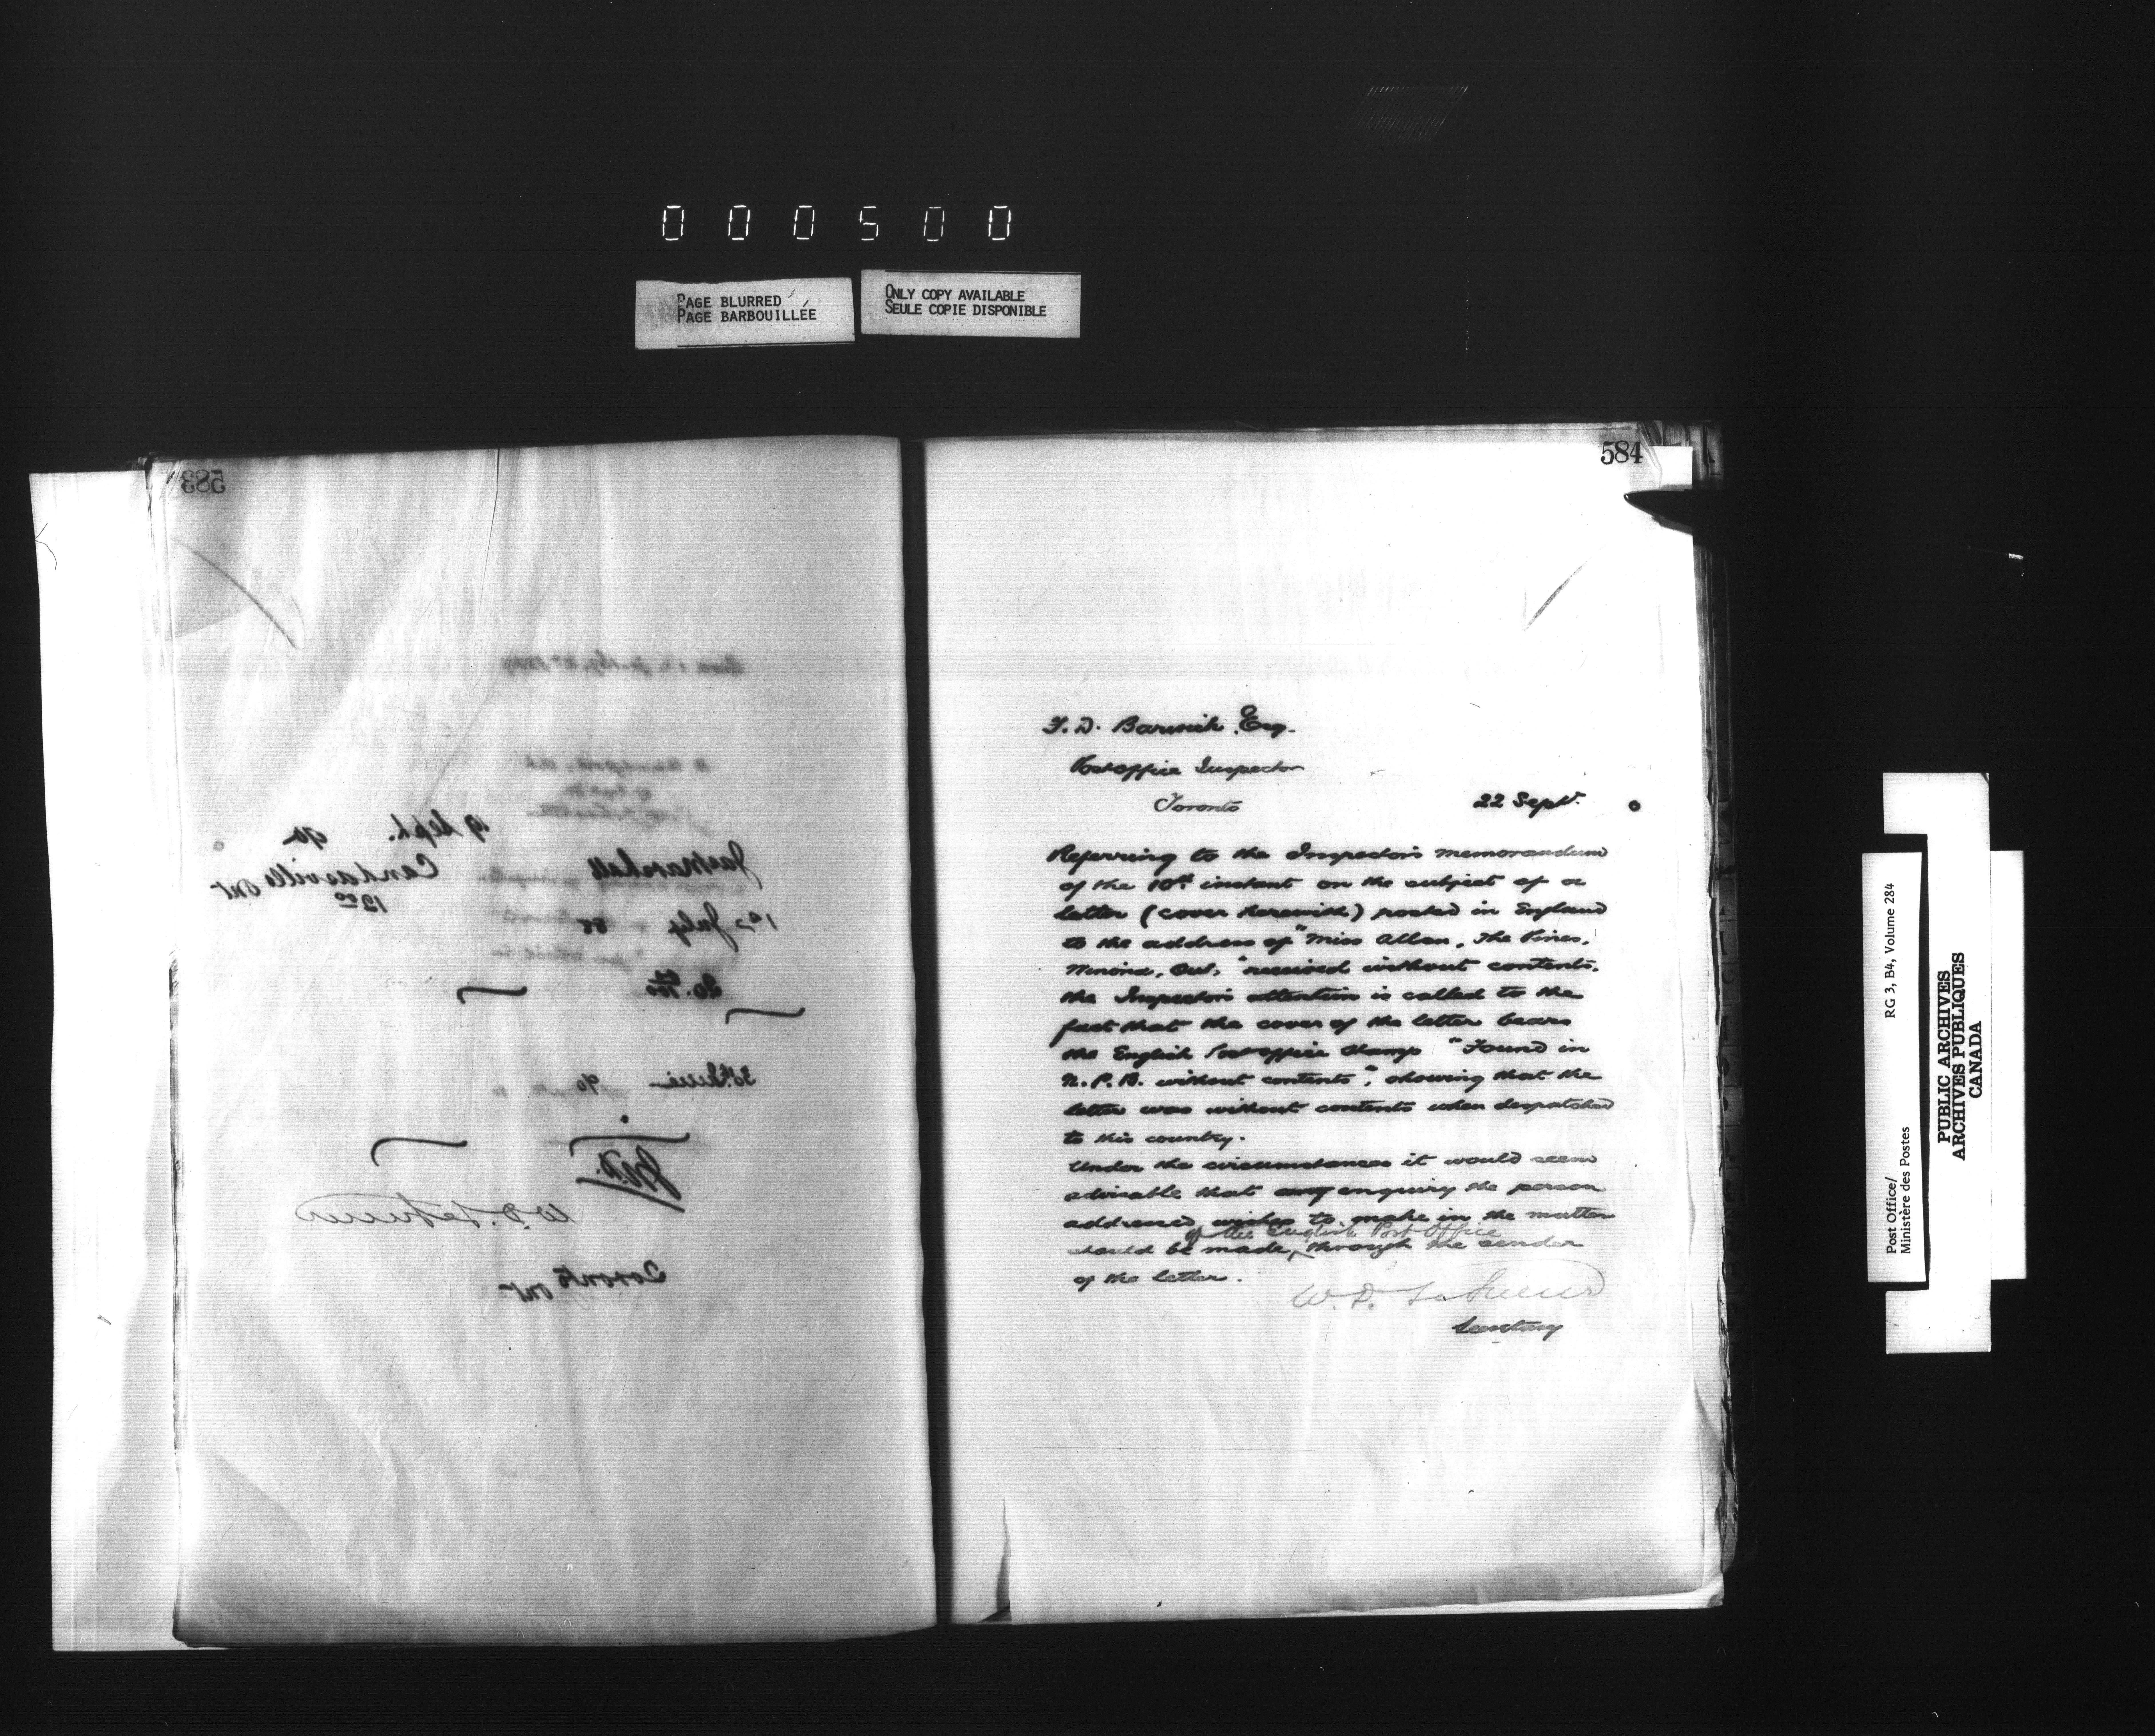 000500
PAGE BLURRED
PAGE BARBOUILLÉE
ONLY COPY AVAILABLE
SEULE COPIE DISPONIBLE
583
19 Sept. 90
Jas Marshall Candasville Ont
12 00
July 88
20.
30 June 90
W. D. LeSueur
Toronto Ont
584
F. D. Barwick Esq.
Post Office Inspector
Toronto
22 Sept. 0
Referring to the Inspector's memorandum
of the 10th instant on the subject of a
letter (cover herewith) posted in England
to the address of "Miss Allen, The Pines,
Ont," received without contents,
the Inspector's attention is called to the
fact that the cover of the letter bears
the English Post Office stamp "Found in
N. P. B. without contents", showing that the
letter was without contents when despatched
to this country.
Under the circumstances it would seem
advisable that any enquiry the person
addressed wishes to make in the matter
of the English Post Office
should be made, through the sender
of the letter.
W. D. LeSueur
Secretary
Post Office/
Ministère des Postes
RG 3, B4, Volume 284
PUBLIC ARCHIVES
ARCHIVES PUBLIQUES
CANADA